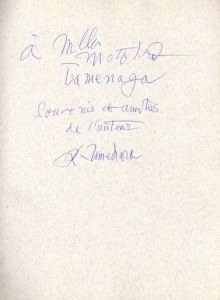 à Mlle
Motoko
Tamenaga
Souvenir et amitiés
de l'auteur